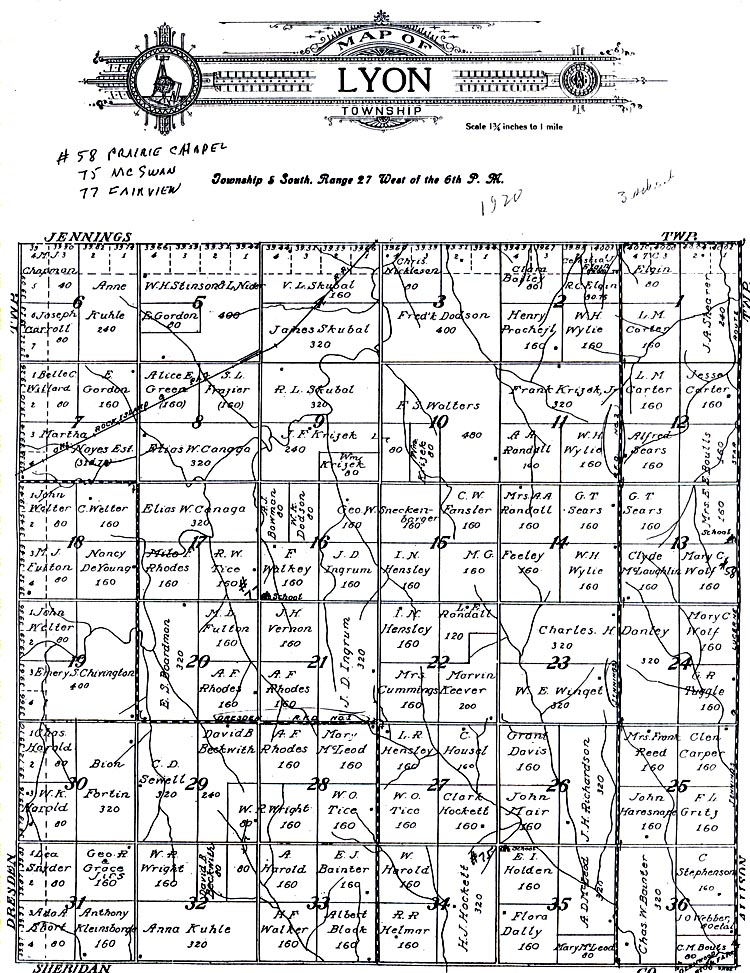 MAP OF
LYON
TOWNSHIP
Scale 1¾ inches to 1 mile
# 58 PRAIRIE CHAPEL
75 MCSWAN
77 FAIRVIEW
Township 5 South, Range 27 West of the 6th P. M.
1920
3 school
JENNINGS
TWP.
M.J. Chapman 40
Anne Kuhle 240
6
Joseph Carroll 80
W.H. Stinson
5
E. Gordon 80
400
V. L. Skubal 160
4
James Skubal 320
Chris Nickleson 80
3
Fred'k Dodson 400
Clara Bailey 80
2
R.C. Elgin 80.75
Henry Prochejl 160
W.H. Wylie 160
Elgin 80
1
L. M. Carter 160
J.A. Shearer 240
Belle C. Willard 80
E. Gordon 160
7
Martha Noyes Est.
ROCK ISLAND
Alice E. Green (160)
S.L. Frazier (160)
8
Elias W. Canaga 320
R. L. Skubal
9
J. F. Krizek 240
Wm Krizek 80
F. S. Walters
10
480
80
Wm Krizek 80
Frank Krizek, Jr. 320
11
A. A. Randall 160
W.H. Wylie 160
L. M. Carter 160
Jesse Carter 160
12
Alfred Sears 160
Mrs. E. E. Boults 160
John Welter 80
C. Welter 160
18
M. J. Fulton 80
Nancy DeYoung 160
Elias W. Canaga 320
17
Milo F. Rhodes 160
R. W. Tice 160
A.J. Bowman 80
W.K. Dodson 80
Geo. W. Sneckenbarger 160
16
F. Walkey 160
School
J. D. Ingrum 160
C. W. Fansler 160
15
I. N. Hensley 160
M. G. Feeley 160
Mrs. A.A. Randall 160
G. T. Sears 160
14
W.H. Wylie 160
G. T. Sears 160
13
School
#58
Clyde McLaughlin 160
Mary C. Wolf 160
John Welter 80
19
Emery S. Chivington 400
E. S. Boardman 320
M. L. Fulton 160
20
A. F. Rhodes 160
J.H. Vernon 160
21
A. F. Rhodes 160
J. D. Ingrum 320
I. N. Hensley 160
L. F. Randall 120
22
Mrs. Cummings 160
Marvin Keever 200
Charles. H. Danley 320
23
W. E. Winget 320
320
Mary C. Wolf 160
24
G. R. Tuggle 160
DRESDEN R.F.D. No. 1
Chas. Harold 80
30
W.K. Harold 80
Bion Fortin 320
C. D. Sewell 320
29
David B. Beckwith 240
A. F. Rhodes 160
Mary McLeod 160
28
W. P. Wright 160
80
W.O. Tice 160
L. R. Hensley 160
C. Housel 160
27
W. O. Tice 160
Clark Hockett 160
Grant Davis 160
26
John Mair 160
J. H. Richardson 320
Mrs. Frank Reed 160
Clen Carper 160
25
John Haresnape 160
F. L. Gritz 160
Lea Snyder 80
Geo. R. & Grace Tips 160
31
Ada A. Short 80
Anthony Kleinsborge 160
W. R. Wright 160
David B. Beckwith 80
80
32
Anna Kuhle 320
A. Harold 160
E. J. Bainter 160
33
H. F. Walker 160
Albert Black 160
W. Harold 160
34
R. R. Helmar 160
H. J. Hockett 320
#75
School
E. I. Holden 160
35
Flora Dally 160
A. D. McLeod 320
Mary McLeod 80
Chas. W. Bainter 320
C. Stephenson 160
36
J O Webber, et al
C.M. Boults 80
DRESDEN
TWP.
SHERIDAN
CO.